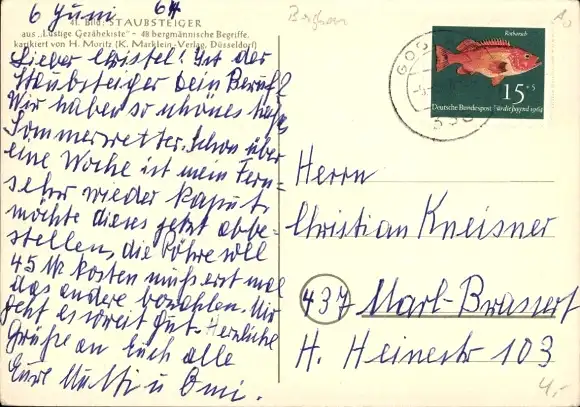 6 Juni 64
41. Bild: STAUBSTEIGER
aus „Lustige Gezähekiste" - 48 bergmännische Begriffe,
karikiert von H. Moritz (K. Marklein-Verlag, Düsseldorf)
Lieber Christel! Ist der
Staubsteiger Dein Beruf?
Wir haben so schönes
Sommerwetter. Schon über
eine Woche ist mein Fern-
seher wieder kaput,
möchte dieses jetzt abbe-
stellen, die Röhre soll
45 M kosten muß erst mal
das andere bezahlen. Mir
geht es soweit gut. Herzliche
Grüße an Euch alle
Eure Mutti u Omi.
Bergbau
Rotbarsch
15+5
Deutsche Bundespost Für die Jugend 1964
Herrn
Christian Kneisner
437 Marl-Brassert
H. Heinestr 103
4,-